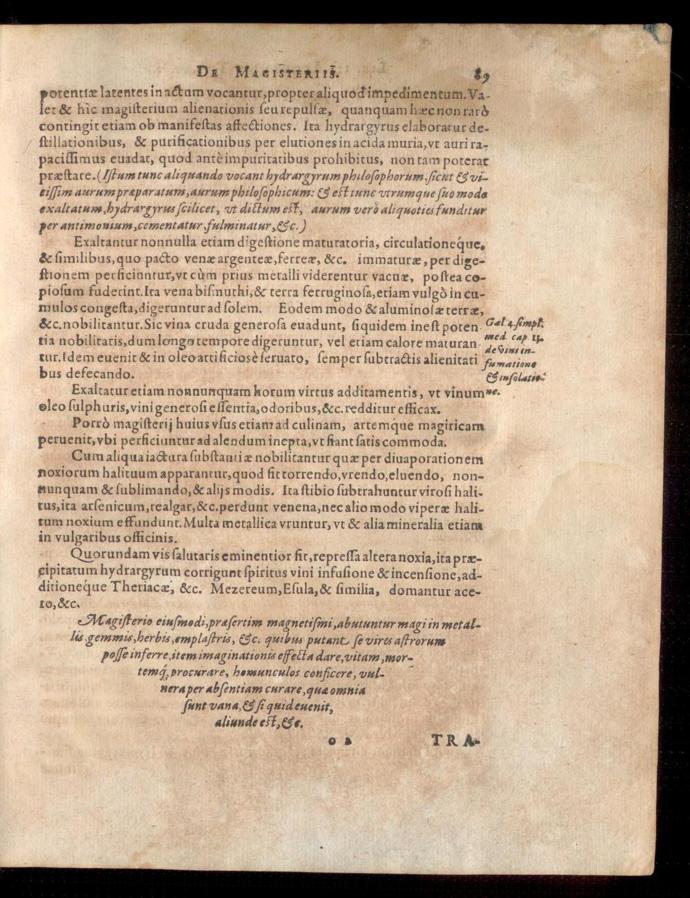 DE MAGISTERIIS. 89
potentiæ latentes in actum vocantur, propter aliquod impedimentum. Va-
let & hîc magisterium alienationis seu repulsæ, quanquam hæc non rarò
contingit etiam ob manifestas affectiones. Ita hydrargyrus elaboratur de-
stillationibus, & purificationibus per elutiones in acida muria, vt auri ra-
pacissimus euadat, quod antè impuritatibus prohibitus, non tam poterat
præstare. (Istum tunc aliquando vocant hydrargyrum philosophorum, sicut & vi-
cissim aurum præparatum, aurum philosophicum: & est tunc vtrumque suo modo
exaltatum, hydrargyrus scilicet, vt dictum est, aurum verò aliquoties funditur
per antimonium, cementatur, fulminatur, &c.)
Exaltantur nonnulla etiam digestione maturatoria, circulationeq́ue,
& similibus, quo pacto venæ argenteæ, ferreæ, &c. immaturæ, per dige-
stionem perficiuntur, vt cùm prius metalli viderentur vacuæ, postea co-
piosum fuderint. Ita vena bismuthi, & terra ferruginosa, etiam vulgò in cu-
mulos congesta, digeruntur ad solem. Eodem modo & aluminosæ terræ,
&c. nobilitantur. Sic vina cruda generosa euadunt, siquidem inest poten
tia nobilitatis, dum longo tempore digeruntur, vel etiam calore maturan
tur. Idem euenit & in oleo artificiosè seruato, semper subtractis alienitati
bus defecando.
Gal. 4. simpl.
med. cap. 13.
de vini in-
fumatione
& insolatio-
ne.
Exaltatur etiam nonnunquam horum virtus additamentis, vt vinum
oleo sulphuris, vini generosi essentia, odoribus, &c. redditur efficax.
Porrò magisterij huius vsus etiam ad culinam, artemque magiricam
peruenit, vbi perficiuntur ad alendum inepta, vt fiant satis commoda.
Cum aliqua iactura substantiæ nobilitantur quæ per diuaporationem
noxiorum halituum apparantur, quod fit torrendo, vrendo, eluendo, non-
nunquam & sublimando, & alijs modis. Ita stibio subtrahuntur virosi hali-
tus, ita arsenicum, realgar, &c. perdunt venena, nec alio modo viperæ hali-
tum noxium effundunt. Multa metallica vruntur, vt & alia mineralia etiam
in vulgaribus officinis.
Quorundam vis salutaris eminentior fit, repressa altera noxia, ita præ-
cipitatum hydrargyrum corrigunt spiritus vini infusione & incensione, ad-
ditioneq́ue Theriacæ, &c. Mezereum, Esula, & similia, domantur ace-
to, &c.
Magisterio eiusmodi, præsertim magnetismi, abutuntur magi in metal-
lis, gemmis, herbis, emplastris, &c. quibus putant se vires astrorum
posse inferre, item imaginationis effecta dare, vitam, mor-
temq́, procurare, homunculos conficere, vul-
nera per absentiam curare, quæ omnia
sunt vana, & si quid euenit,
aliunde est, &c.
o 2 TRA-